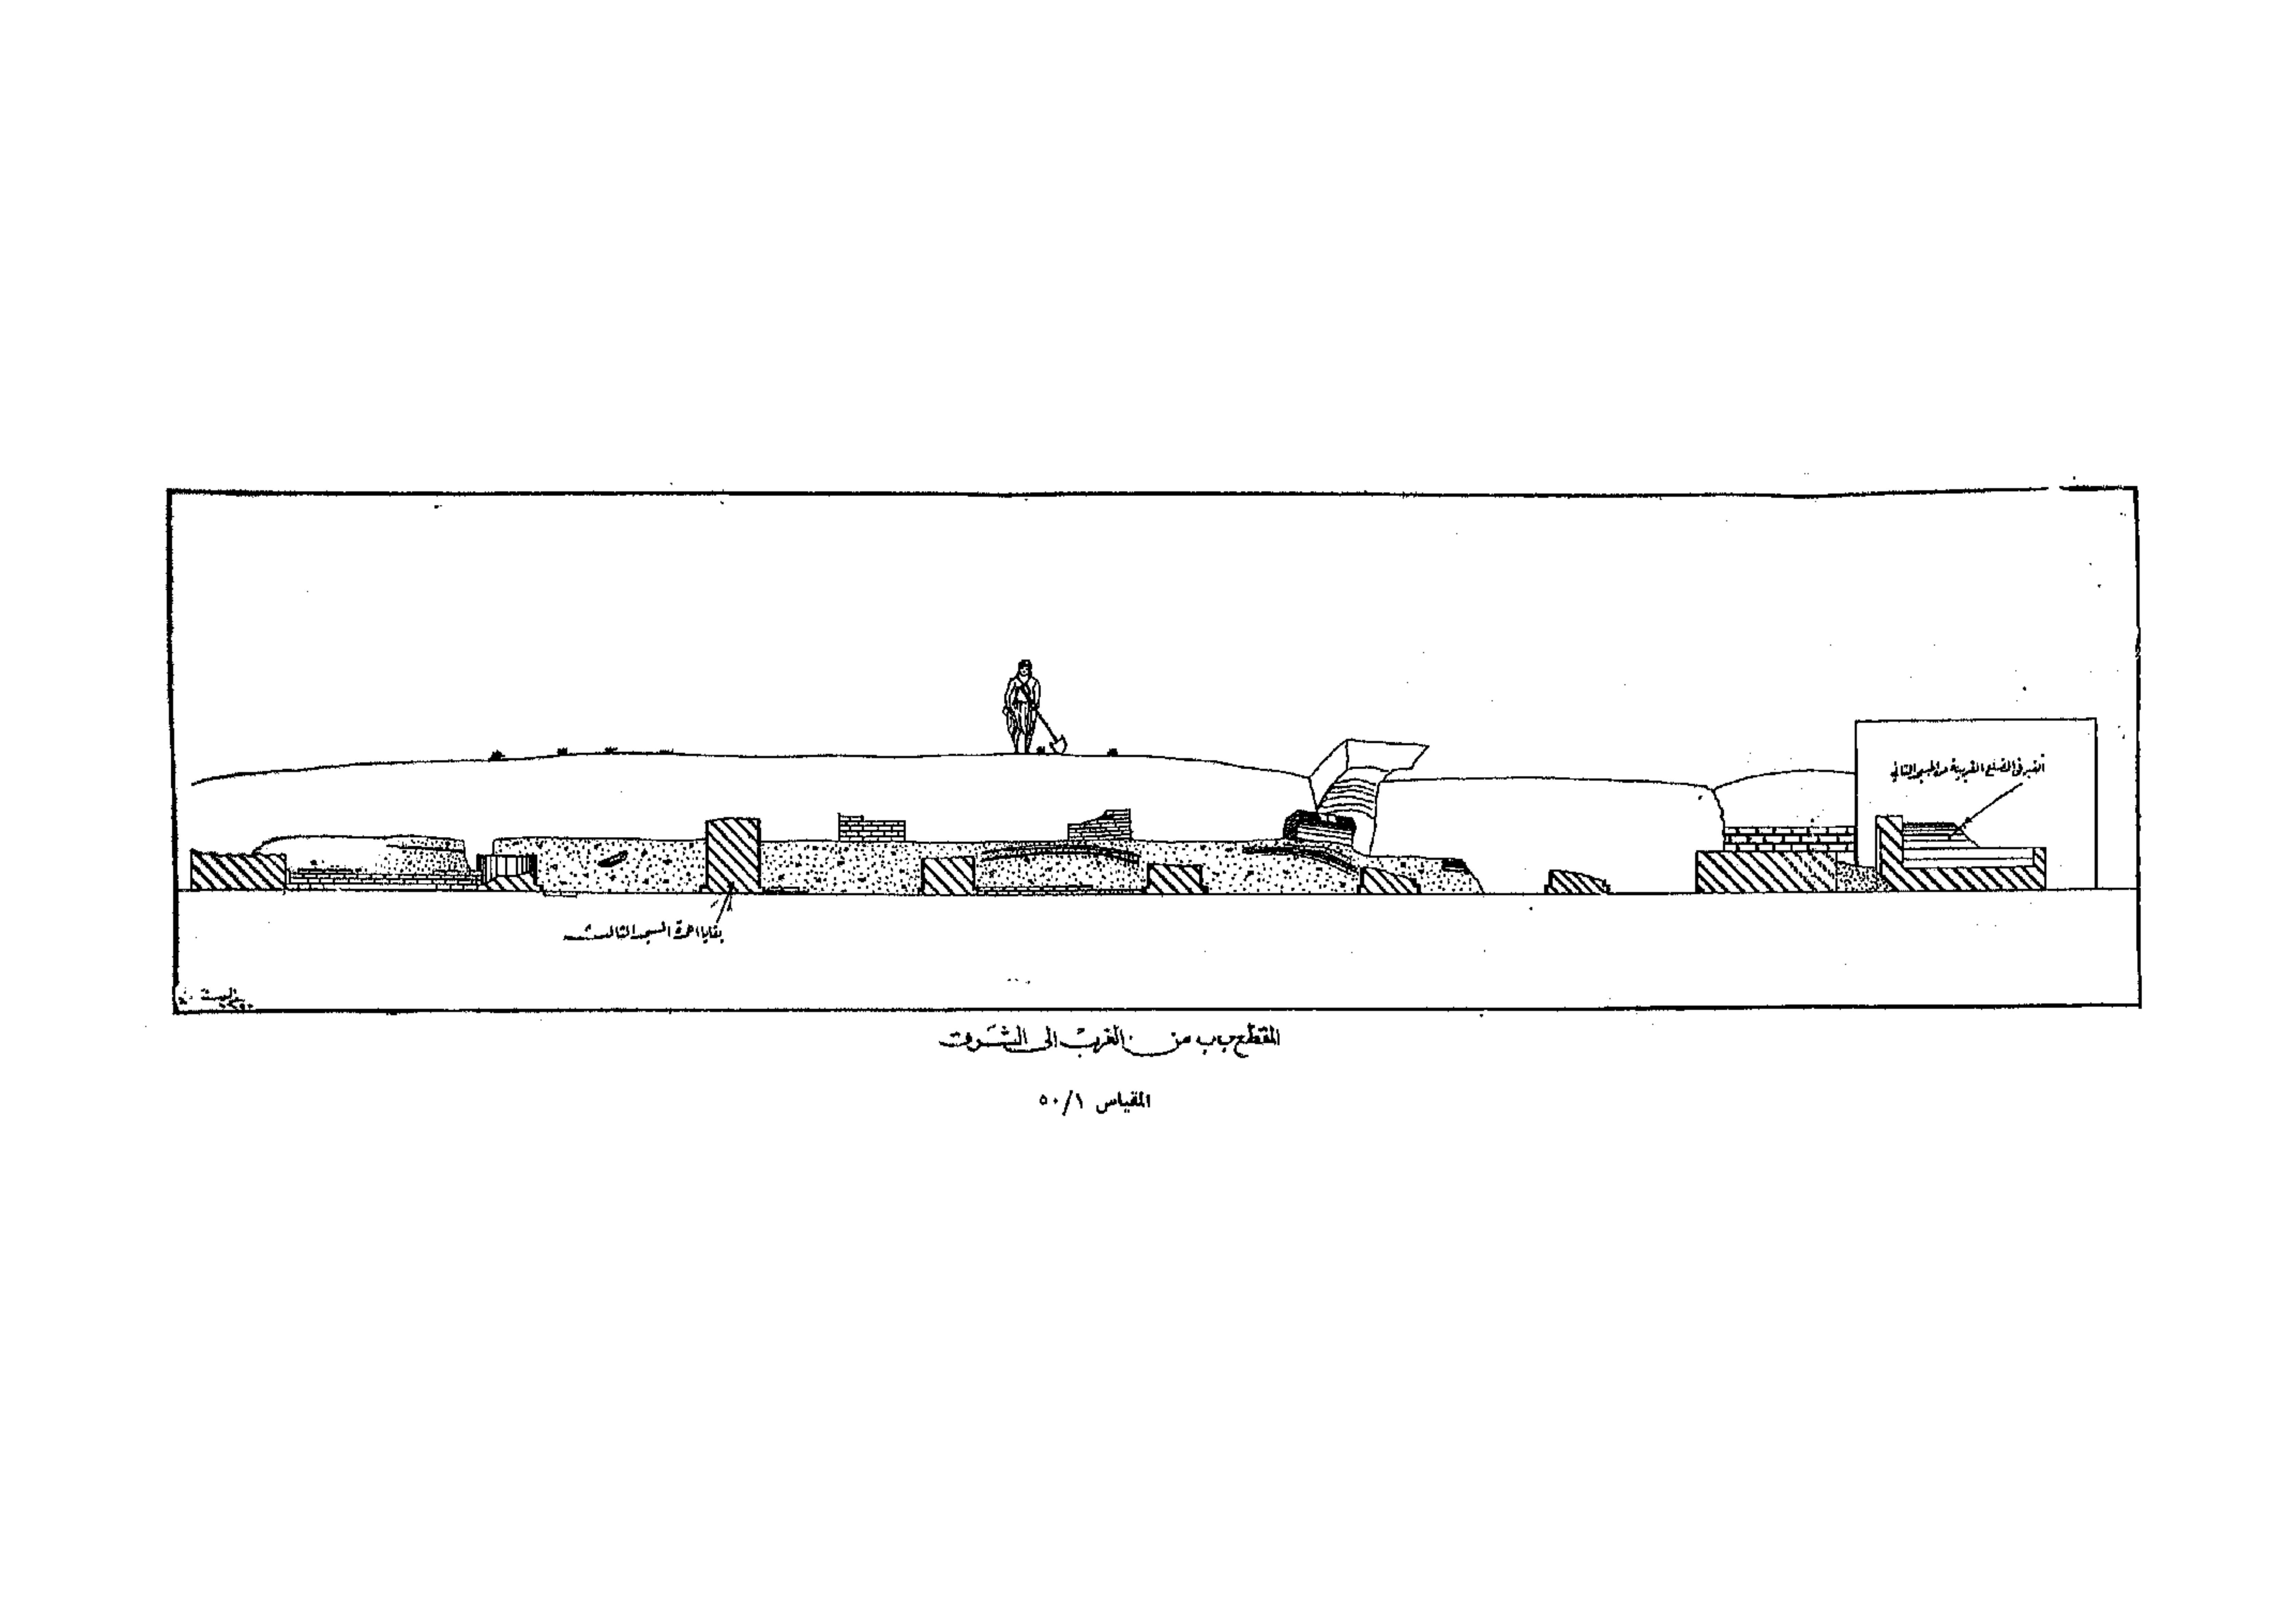 القبر في الضلع الغربية من المسجد الثاني
بقايا اعمدة المسجد الثالث
المقطع ب ب من الغرب الى الشرق
المقياس ٥٠/١